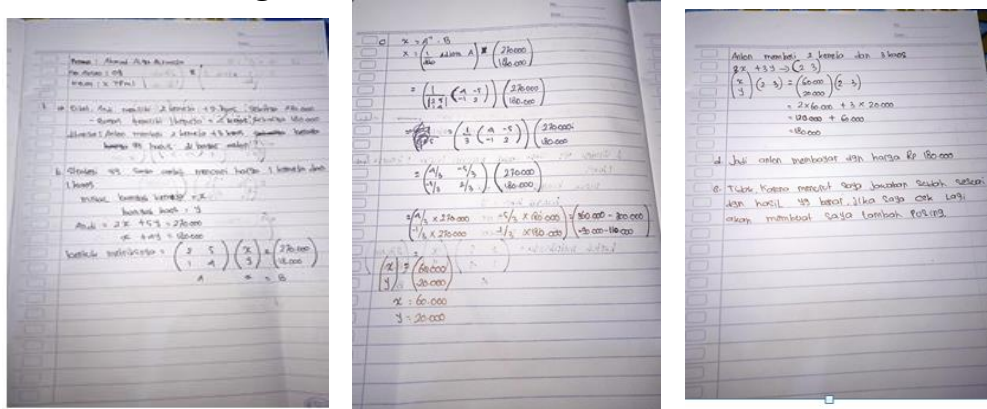 Nama : Ahmad
No. Absen : 09
Kelas : X TPM 1
1. a. Diket. Andi membeli 2 kemeja + 5 kaos, seharga 270.000
membeli 1 kemeja + 4 kaos seharga 180.000
ditanya : Anton membeli 2 kemeja + 3 kaos
harus di bayar anton?
b. Strategi yg saya mencari harga 1 kemeja dan
1 kaos
misal kemeja = x
kaos = y
Andi = 2x + 5y = 270.000
x + 4y = 180.000
bentuk matriksnya = (2 5) (x) = (270.000)
(1 4) (y) (180.000)
A x = B
c x = A⁻¹ . B
x = (1/ adjoin A) (270.000)
(180.000)
= (1/ (4 -5)) (270.000)
(-1 2) (180.000)
= (1/3 (4 -5)) (270.000)
(-1 2) (180.000)
= (4/3 -5/3) (270.000)
(-1/3 2/3) (180.000)
= (4/3 x 270.000 -5/3 x 180.000) = (360.000 - 300.000)
(-1/3 x 270.000 x 180.000)
(x) = (60.000)
(y) (20.000)
x = 60.000
y = 20.000
Anton membeli 2 kemeja dan 3 kaos
2x + 3y → (2 3)
(x) (2 3) = (60.000) (2 3)
(y) (20.000)
= 2 x 60.000 + 3 x 20.000
= 120.000 + 60.000
= 180.000
d. Jadi anton membayar dgn harga Rp 180.000
e. Tidak, Karena menurut saya jawaban sudah sesuai
dgn hasil yg benar. jika saya cek lagi
akan membuat saya tambah pusing.